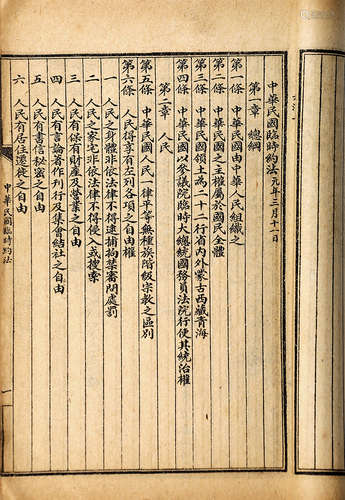 中華民國臨時約法 元年三月十一日
第一章 總綱
第一條 中華民國由中華人民組織之
第二條 中華民國之主權屬於國民全體
第三條 中華民國領土為二十二行省內外蒙古西藏青海
第四條 中華民國以參議院臨時大總統國務員法院行使其統治權
第二章 人民
第五條 中華民國人民一律平等無種族階級宗教之區別
第六條 人民得享有左列各項之自由權
一 人民之身體非依法律不得逮捕拘禁審問處罰
二 人民之家宅非依法律不得侵入或搜索
三 人民有保有財產及營業之自由
四 人民有言論著作刊行及集會結社之自由
五 人民有書信秘密之自由
六 人民有居住遷徙之自由
中華民國臨時約法
一